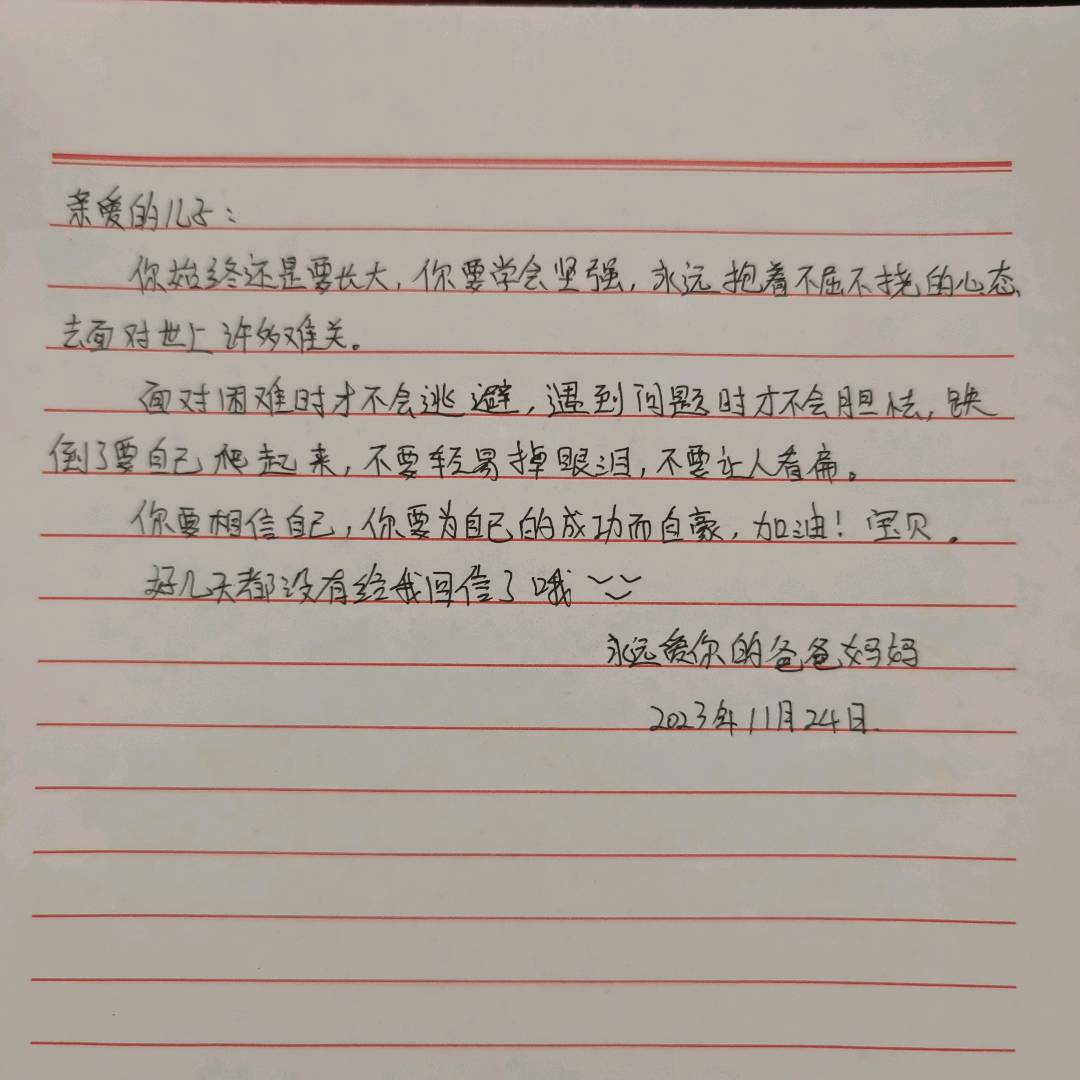 亲爱的儿子：
你始终还是要长大，你要学会坚强，永远抱着不屈不挠的心态
去面对世上许多难关。
面对困难时才不会逃避，遇到问题时才不会胆怯，跌
倒了要自己爬起来，不要轻易掉眼泪，不要让人看扁。
你要相信自己，你要为自己的成功而自豪，加油！宝贝。
好几天都没有给我回信了哦
永远爱你的爸爸妈妈
2023年11月24日.